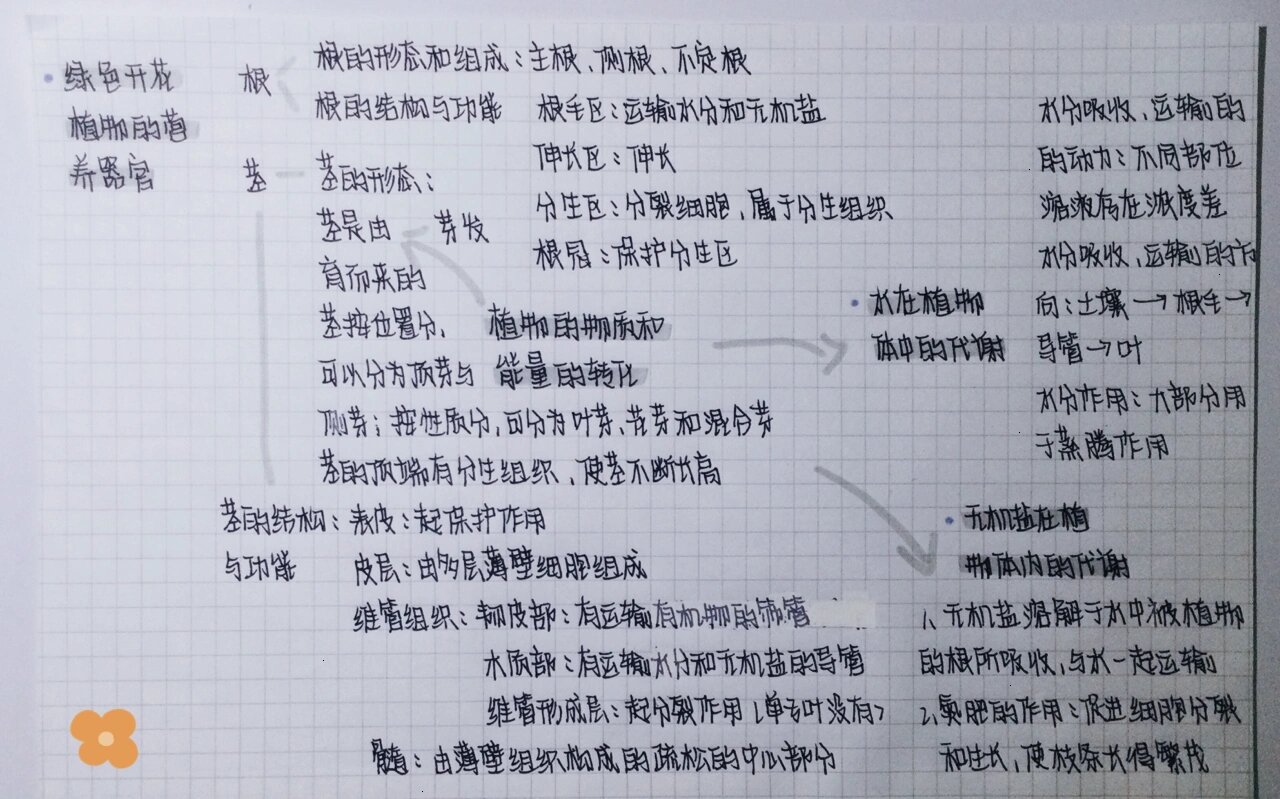 绿色开花
植物的营
养器官
根
根的形态和组成：主根、侧根、不定根
根的结构与功能
根毛区：运输水分和无机盐
伸长区：伸长
分生区：分裂细胞，属于分生组织
根冠：保护分生区
茎
茎的形态：
茎是由 芽发
育而来的
茎按位置分，
可以分为顶芽与
侧芽；按性质分，可分为叶芽、花芽和混合芽
茎的顶端有分生组织，使茎不断长高
茎的结构：表皮：起保护作用
与功能
皮层：由多层薄壁细胞组成
维管组织：韧皮部：有运输有机物的筛管
木质部：有运输水分和无机盐的导管
维管形成层：起分裂作用（单子叶没有）
髓：由薄壁组织构成的疏松的中心部分
植物的物质和
能量的转化
水在植物
体中的代谢
水分吸收、运输的
的动力：不同部位
溶液存在浓度差
水分吸收、运输的方
向：土壤→根毛→
导管→叶
水分作用：大部分用
于蒸腾作用
无机盐在植
物体内的代谢
1、无机盐溶解于水中被植物
的根所吸收，与水一起运输
2、氮肥的作用：促进细胞分裂
和生长，使枝条长得繁茂